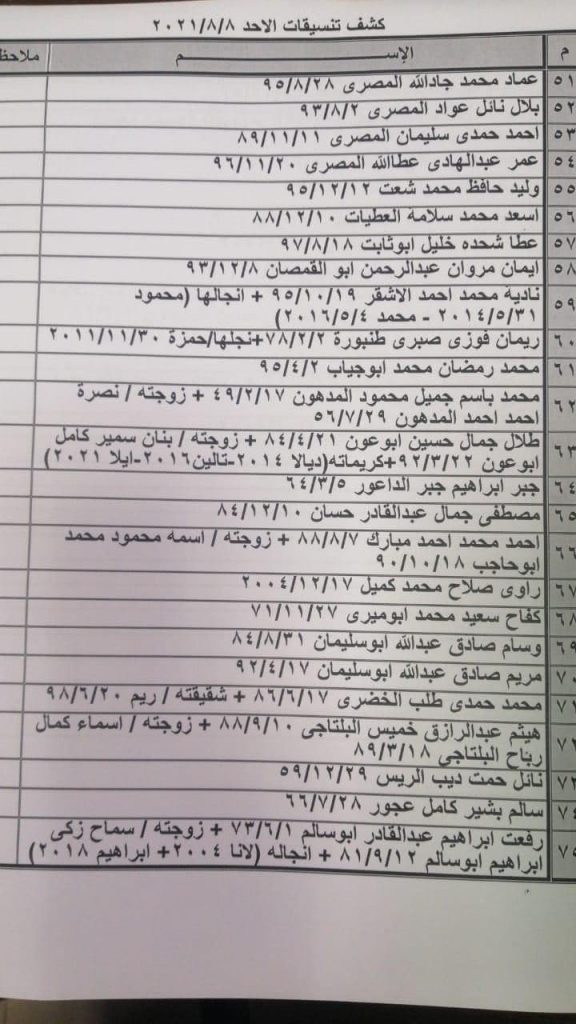 كشف تنسيقات الاحد ٢٠٢١/٨/٨
م الإســـــــم ملاحظ
٥١ عماد محمد جادالله المصرى ٩٥/٨/٢٨
٥٢ بلال نائل عواد المصرى ٩٣/٨/٢
٥٣ احمد حمدى سليمان المصرى ٨٩/١١/١١
٥٤ عمر عبدالهادى عطاالله المصرى ٩٦/١١/٢٠
٥٥ وليد حافظ محمد شعت ٩٥/١٢/١٢
٥٦ اسعد محمد سلامة العطيات ٨٨/١٢/١٠
٥٧ عطا شحده خليل ابوثابت ٩٧/٨/١٨
٥٨ ايمان مروان عبدالرحمن ابو القمصان ٩٣/١٢/٨
٥٩ نادية محمد احمد الاشقر ٩٥/١٠/١٩ + انجالها (محمود
٢٠١٤/٥/٣١ - محمد ٢٠١٦/٥/٤)
٦٠ ريمان فوزى صبرى طنبورة ٧٨/٢/٢+نجلها/حمزة ٢٠١١/١١/٣٠
٦١ محمد رمضان محمد ابوجياب ٩٥/٤/٢
٦٢ محمد باسم جميل محمود المدهون ٤٩/٢/١٧ + زوجته / نصرة
احمد احمد المدهون ٥٦/٧/٢٩
٦٣ طلال جمال حسين ابوعون ٨٤/٤/٢١ + زوجته / بنان سمير كامل
ابوعون ٩٢/٣/٢٢+كريماته(ديالا ٢٠١٤-تالين٢٠١٦-ايلا ٢٠٢١)
٦٤ جبر ابراهيم جبر الداعور ٦٤/٣/٥
٦٥ مصطفى جمال عبدالقادر حسان ٨٤/١٢/١٠
٦٦ احمد محمد احمد مبارك ٨٨/٨/٧ + زوجته / اسمه محمود محمد
ابوحاجب ٩٠/١٠/١٨
٦٧ راوى صلاح محمد كميل ٢٠٠٤/١٢/١٧
٦٨ كفاح سعيد محمد ابوميرى ٧١/١١/٢٧
٦٩ وسام صادق عبدالله ابوسليمان ٨٤/٨/٣١
٧٠ مريم صادق عبدالله ابوسليمان ٩٢/٤/١٧
٧١ محمد حمدى طلب الخضرى ٨٦/٦/١٧ + شقيقته / ريم ٩٨/٦/٢٠
٧٢ هيثم عبدالرازق خميس البلتاجى ٨٨/٩/١٠ + زوجته / اسماء كمال
رباح البلتاجي ٨٩/٣/١٨
٧٣ نائل حمت ديب الريس ٥٩/١٢/٢٩
٧٤ سالم بشير كامل عجور ٦٦/٧/٢٨
٧٥ رفعت ابراهيم عبدالقادر ابوسالم ٧٣/٦/١ + زوجته / سماح زكى
ابراهيم ابوسالم ٨١/٩/١٢ + انجاله (لانا ٢٠٠٤+ ابراهيم ٢٠١٨)